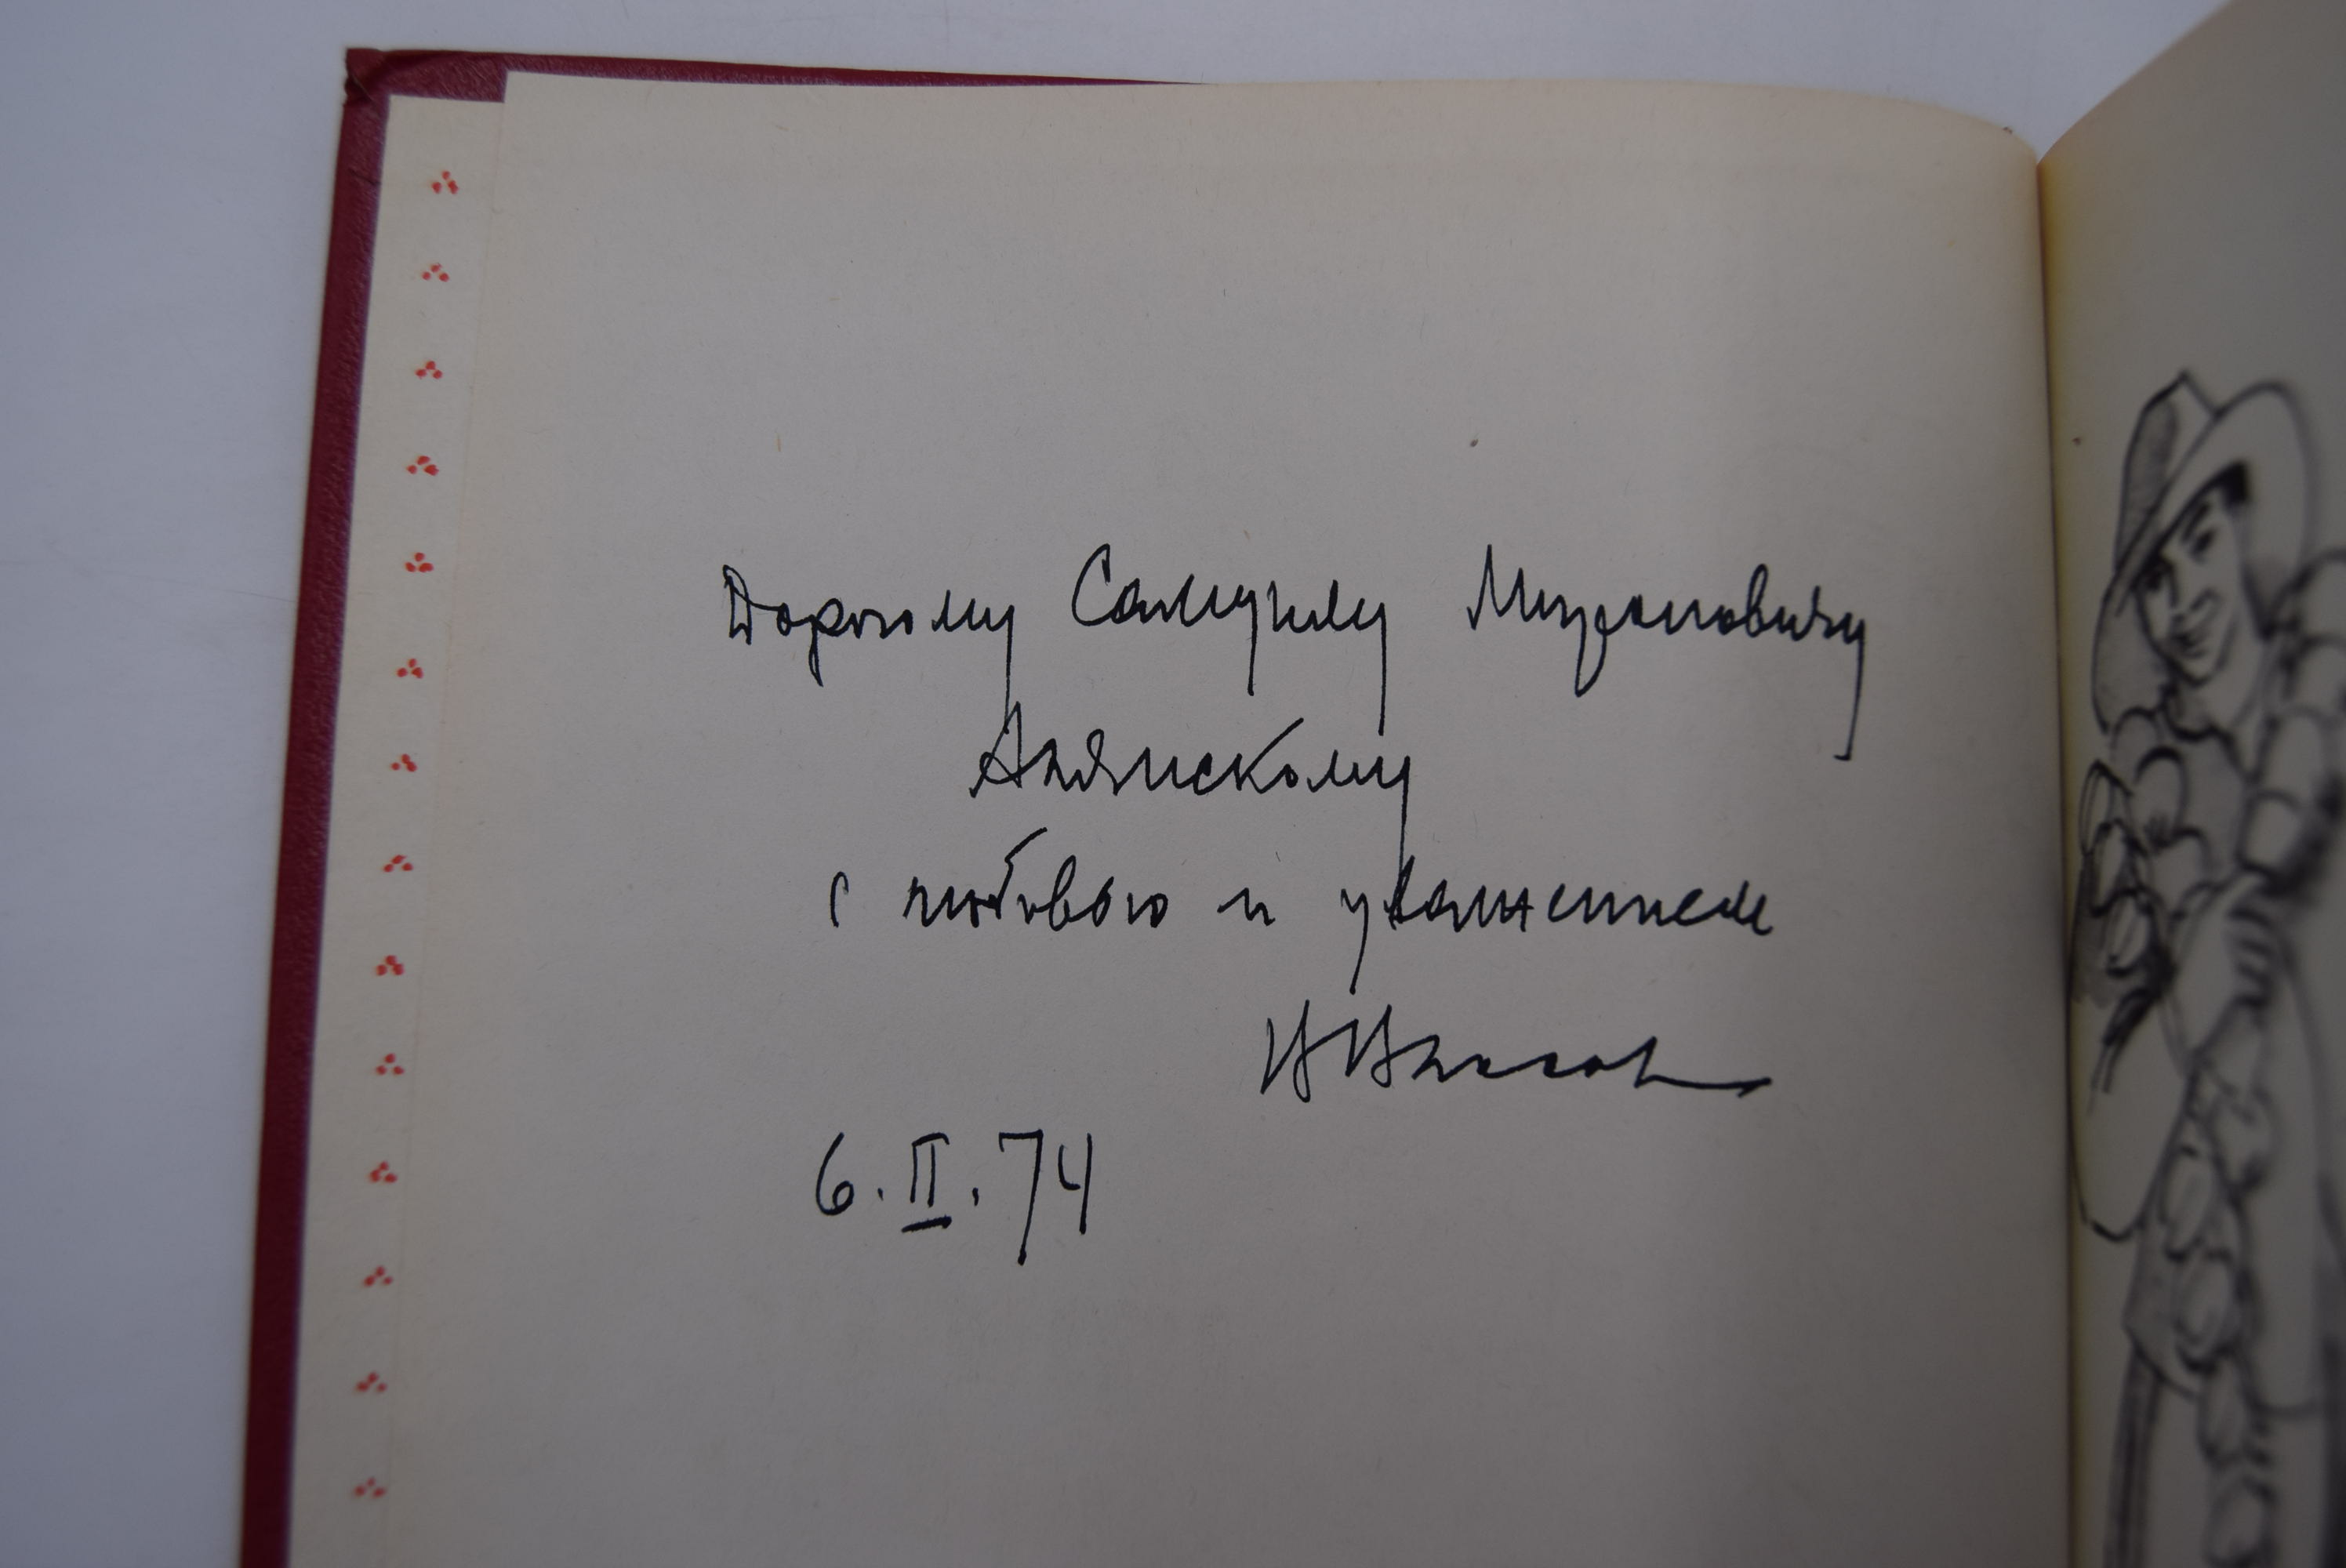 Дорогому Самуилу Мироновичу
Алянскому
с любовью и уважением
6.II.74